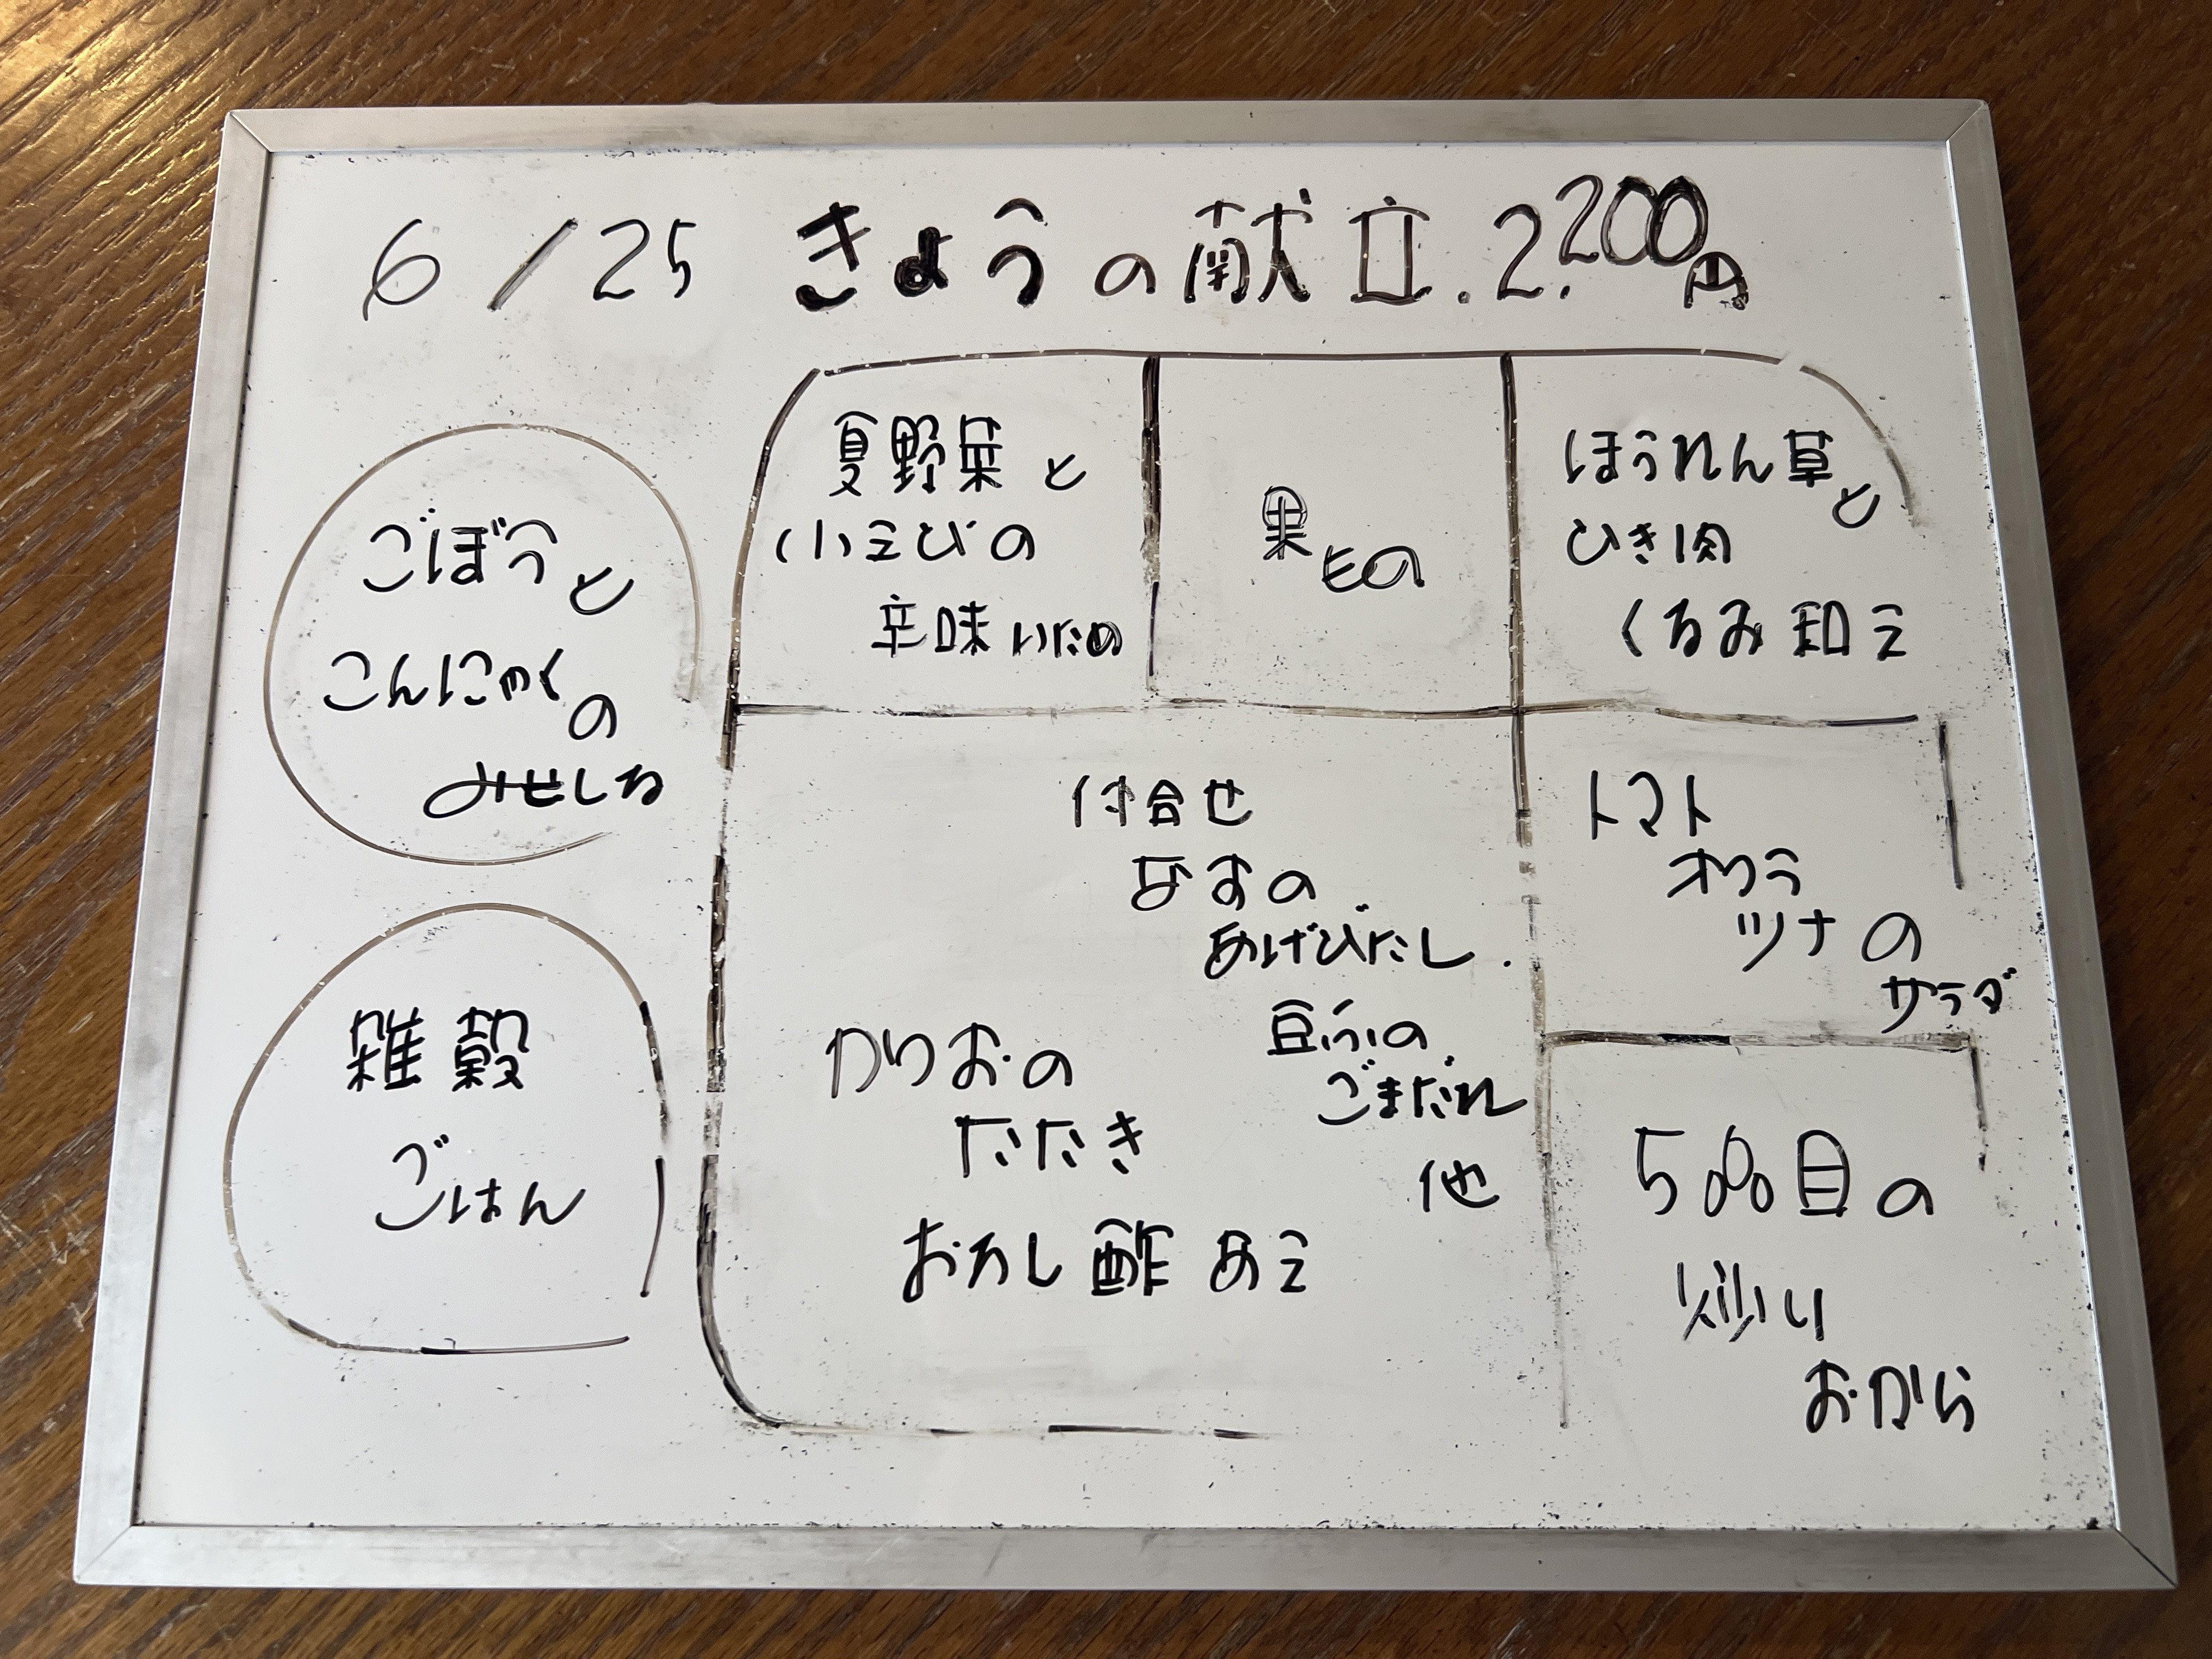 6/25 きょうの献立. 2,200円
ごぼうと
こんにゃくの
みそしる
雑穀
ごはん
夏野菜と
小えびの
辛味いため
果もの
ほうれん草と
ひき肉
くるみ和え
付合せ
なすの
あげびたし.
豆ふの
ごまだれ
他
かつおの
たたき
おろし酢あえ
トマト
オクラ
ツナの
サラダ
5品目の
炒り
おから